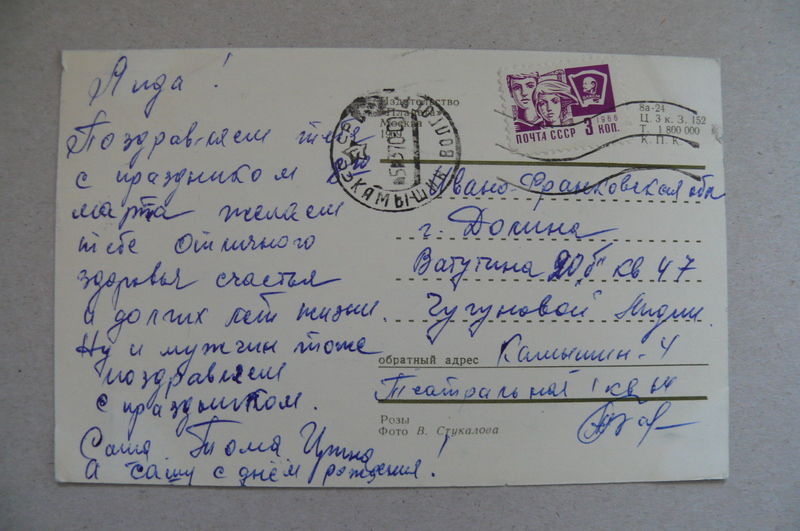 Лида!
Поздравляем тебя
с праздником 8го
марта желаем
тебе отличного
здоровья счастья
и долгих лет жизни.
Ну и мужчин тоже
поздравляем
с праздником.
Саша Тома Ирина
А Сашу с днём рождения.
Издательство
Москва
ПОЧТА СССР 3 КОП.
1966
8а-24
Ц. 3 к. З. 152
Т. 1 800 000
К. П. К.
Ивано-Франковская обл
г. Долина
Ватутина 20"б" кв 47
Чугуновой Лидии.
обратный адрес Камышин-4
Театральная 1 кв 64
Розы
Фото В. Стукалова